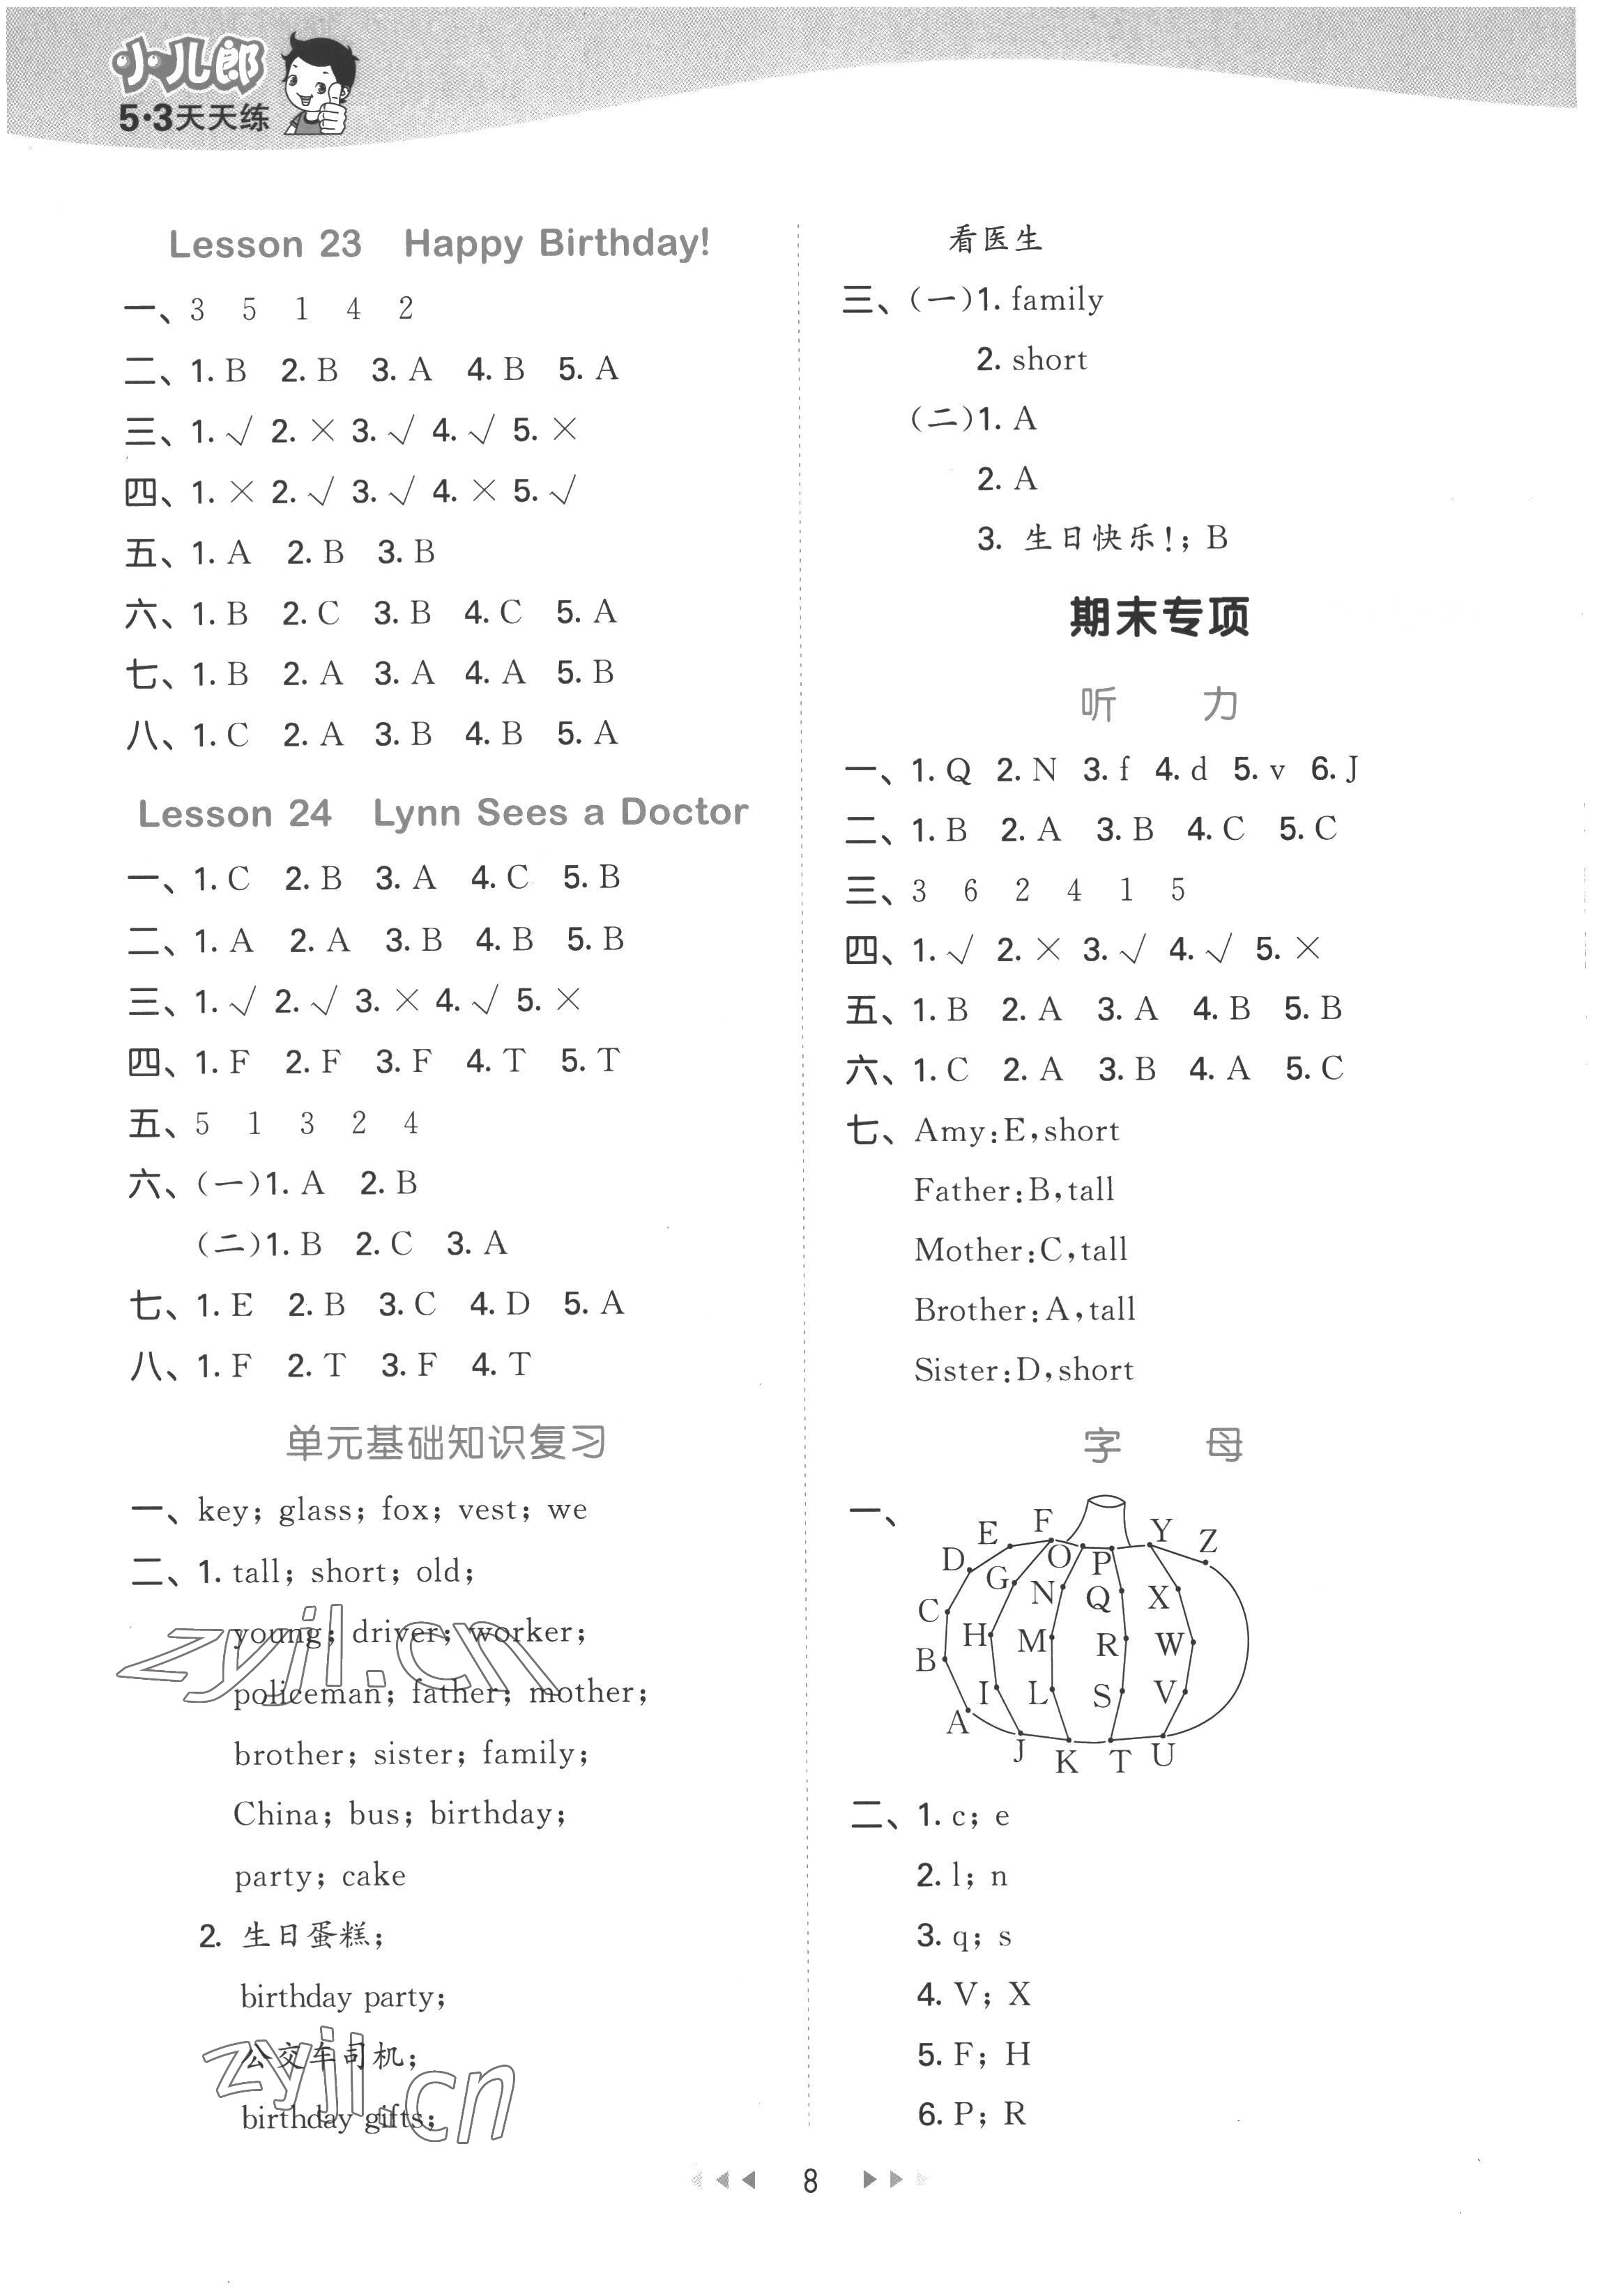 小儿郎
5·3天天练
Lesson 23 Happy Birthday!
一、3 5 1 4 2
二、1. B 2. B 3. A 4. B 5. A
三、1. √ 2. × 3. √ 4. √ 5. ×
四、1. × 2. √ 3. √ 4. × 5. √
五、1. A 2. B 3. B
六、1. B 2. C 3. B 4. C 5. A
七、1. B 2. A 3. A 4. A 5. B
八、1. C 2. A 3. B 4. B 5. A
Lesson 24 Lynn Sees a Doctor
一、1. C 2. B 3. A 4. C 5. B
二、1. A 2. A 3. B 4. B 5. B
三、1. √ 2. √ 3. × 4. √ 5. ×
四、1. F 2. F 3. F 4. T 5. T
五、5 1 3 2 4
六、(一)1. A 2. B
(二)1. B 2. C 3. A
七、1. E 2. B 3. C 4. D 5. A
八、1. F 2. T 3. F 4. T
单元基础知识复习
一、key; glass; fox; vest; we
二、1. tall; short; old;
young; driver; worker;
policeman; father; mother;
brother; sister; family;
China; bus; birthday;
party; cake
2. 生日蛋糕;
birthday party;
公交车司机;
birthday gifts;
zyjl.cn
zyjl.cn
看医生
三、(一)1. family
2. short
(二)1. A
2. A
3. 生日快乐!; B
期末专项
听 力
一、1. Q 2. N 3. f 4. d 5. v 6. J
二、1. B 2. A 3. B 4. C 5. C
三、3 6 2 4 1 5
四、1. √ 2. × 3. √ 4. √ 5. ×
五、1. B 2. A 3. A 4. B 5. B
六、1. C 2. A 3. B 4. A 5. C
七、Amy:E,short
Father:B,tall
Mother:C,tall
Brother:A,tall
Sister:D,short
字 母
一、
E F Y Z
D G O P
C N Q X
B H M R W
A I L S V
J K T U
二、1. c; e
2. l; n
3. q; s
4. V; X
5. F; H
6. P; R
8